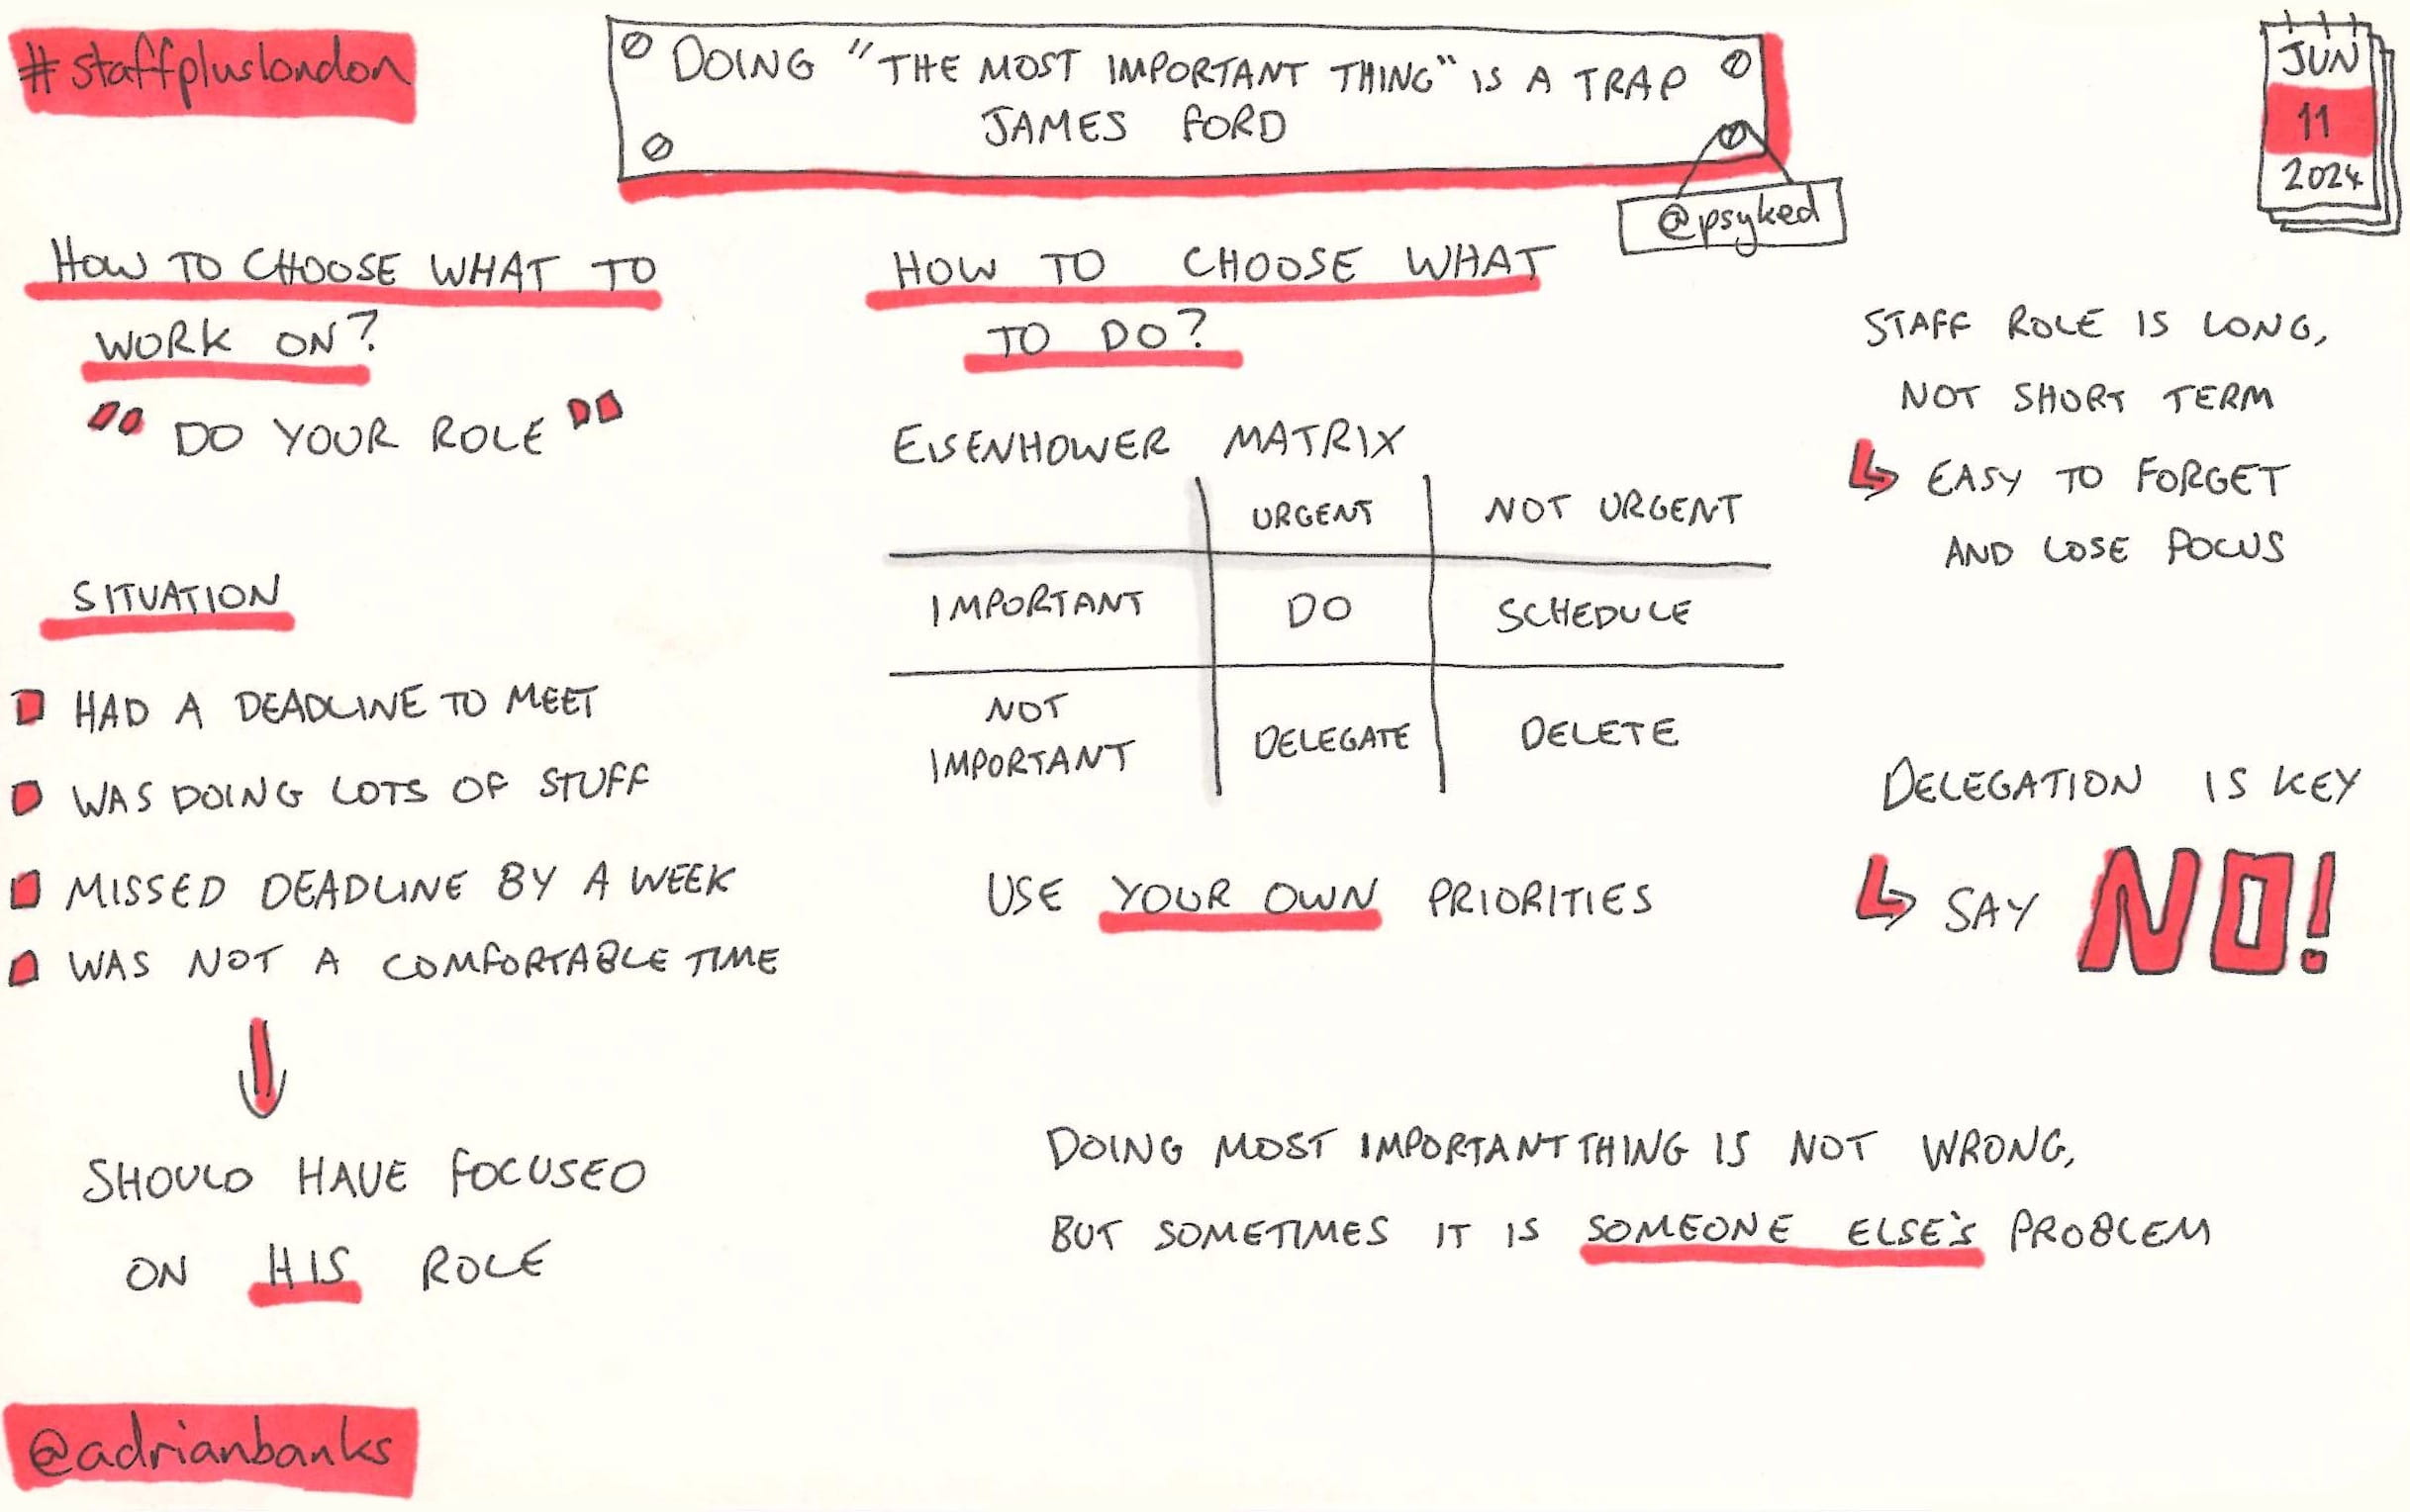 #staffpluslondon
DOING "THE MOST IMPORTANT THING" IS A TRAP
JAMES FORD
@psyked
JUN
11
2024
HOW TO CHOOSE WHAT TO
WORK ON?
"DO YOUR ROLE"
SITUATION
HAD A DEADLINE TO MEET
WAS DOING LOTS OF STUFF
MISSED DEADLINE BY A WEEK
WAS NOT A COMFORTABLE TIME
SHOULD HAVE FOCUSED
ON HIS ROLE
HOW TO CHOOSE WHAT
TO DO?
EISENHOWER MATRIX
URGENT NOT URGENT
IMPORTANT DO SCHEDULE
NOT
IMPORTANT DELEGATE DELETE
USE YOUR OWN PRIORITIES
STAFF ROLE IS LONG,
NOT SHORT TERM
EASY TO FORGET
AND LOSE FOCUS
DELEGATION IS KEY
SAY NO!
DOING MOST IMPORTANT THING IS NOT WRONG,
BUT SOMETIMES IT IS SOMEONE ELSE'S PROBLEM
@adrianbanks